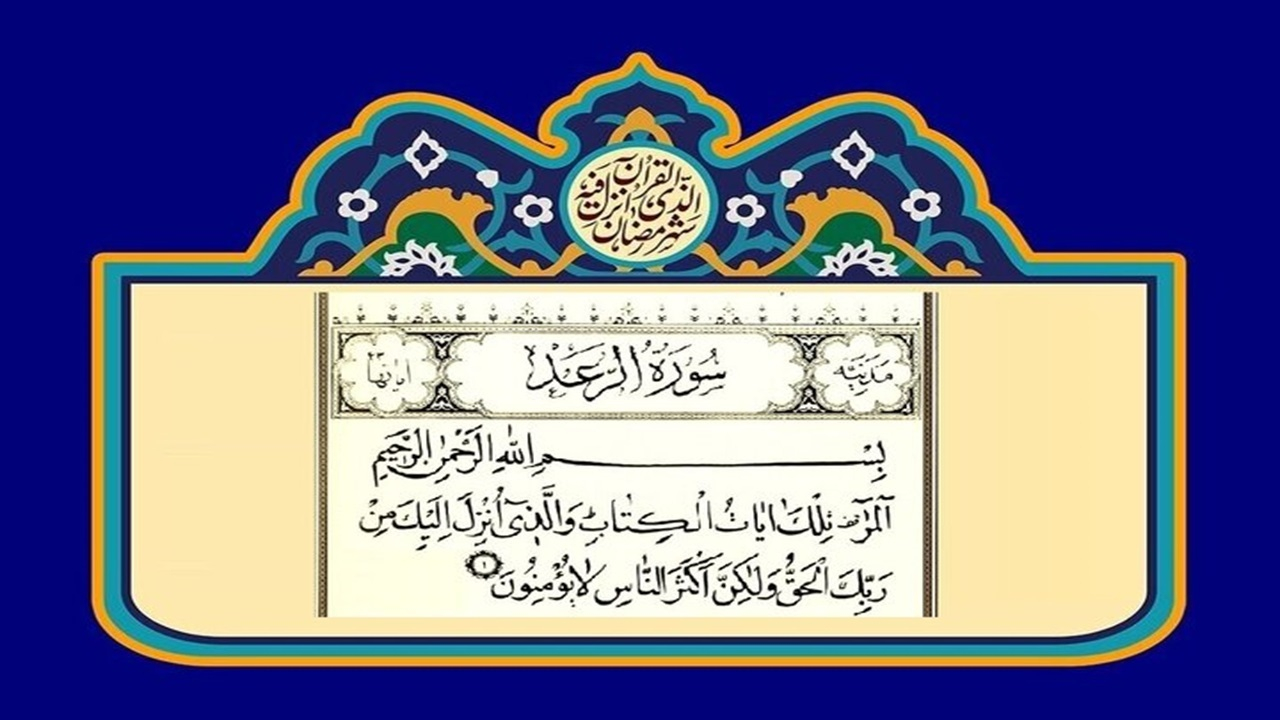 شهر رمضان الذی انزل فیه القرآن
مَدَنِیَّه
سُورَةُ الرَّعَدْ
ایاتها ۴۳
بِسْمِ اللهِ الرَّحْمٰنِ الرَّحیمِ
آلٓمٓرٰ تِلْكَ ایٰاتُ الْكِتٰابِ وَالَّذٖیٓ اُنْزِلَ اِلَیْكَ مِنْ
رَبِّكَ الْحَقُّ وَلٰكِنَّ اَكْثَرَ النّٰاسِ لٰا یُؤْمِنُونَ ۱